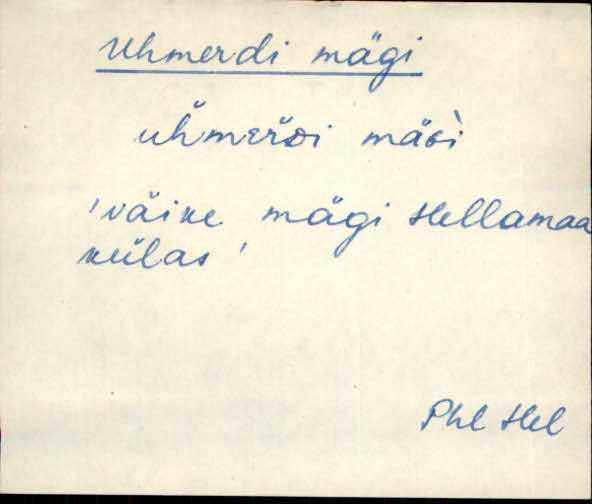 Uhmerdi mägi
uh̆mer̆di mäɢì
'väike mägi Hellamaa
külas'
Phl Hel